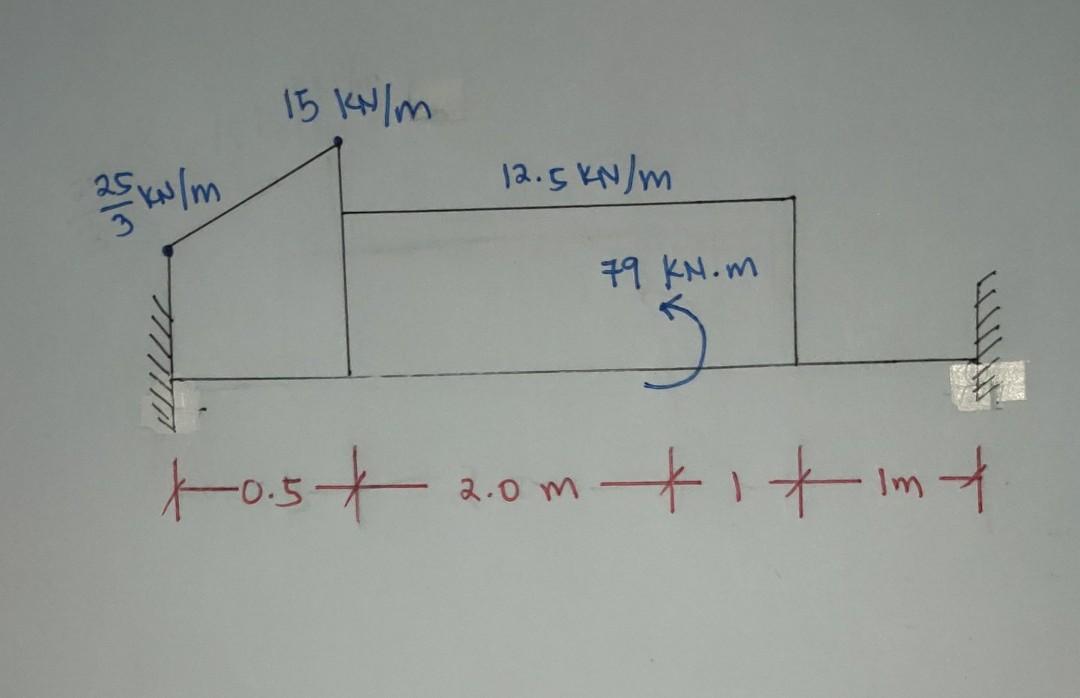 15 KN/m
25/3 KN/m
12.5 KN/m
79 KN.m
0.5
2.0 m
1
1m